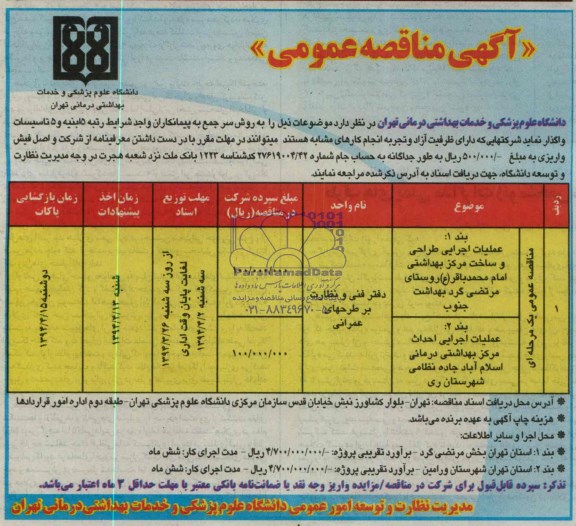 «آگهی مناقصه عمومی»
دانشگاه علوم پزشکی و خدمات
بهداشتی درمانی تهران
دانشگاه علوم پزشکی و خدمات بهداشتی درمانی تهران در نظر دارد موضوعات ذیل را به روش سر جمع به پیمانکاران واجد شرایط رتبه ۵ ابنیه و ۵ تاسیسات
واگذار نماید شرکتهایی که دارای ظرفیت آزاد و تجربه انجام کارهای مشابه هستند میتوانند در مهلت مقرر با در دست داشتن معرفینامه از شرکت و اصل فیش
واریزی به مبلغ ۵۰۰/۰۰۰/- ریال به طور جداگانه به حساب جام شماره ۲۷۶۱۹۰۰۴/۴۲ کدشناسه ۱۲۲۳ بانک ملت نزد شعبه هجرت در وجه مدیریت نظارت
و توسعه دانشگاه، جهت دریافت اسناد به آدرس ذکر شده مراجعه نمایند.
ردیف
موضوع
نام واحد
مبلغ سپرده شرکت در مناقصه (ریال)
مهلت توزیع اسناد
زمان اخذ پیشنهادات
زمان بازگشایی پاکات
۱
مناقصه عمومی یک مرحله ای
بند ۱:
عملیات اجرایی طراحی
و ساخت مرکز بهداشتی
امام محمدباقر(ع) روستای
مرتضی گرد بهداشت
جنوب
بند ۲:
عملیات اجرایی احداث
مرکز بهداشتی درمانی
اسلام آباد جاده نظامی
شهرستان ری
دفتر فنی و نظارت
بر طرحهای
عمرانی
۱۰۰/۰۰۰/۰۰۰
از روز سه شنبه ۱۳۹۴/۳/۲۶
لغایت پایان وقت اداری
سه شنبه ۱۳۹۴/۴/۲
شنبه ۱۳۹۴/۴/۱۳
دوشنبه ۱۳۹۴/۴/۱۵
ParsNamadData
۰۲۱-۸۸۳۴۹۶۷۰-۵
آدرس محل دریافت اسناد مناقصه: تهران- بلوار کشاورز نبش خیابان قدس سازمان مرکزی دانشگاه علوم پزشکی تهران- طبقه دوم اداره امور قراردادها
هزینه چاپ آگهی به عهده برنده می‌باشد.
محل اجرا و سایر اطلاعات:
بند ۱: استان تهران بخش مرتضی گرد - برآورد تقریبی پروژه: ۴/۷۰۰/۰۰۰/۰۰۰/- ریال - مدت اجرای کار: شش ماه
بند ۲: استان تهران شهرستان ورامین - برآورد تقریبی پروژه: ۴/۷۰۰/۰۰۰/۰۰۰/- ریال - مدت اجرای کار: شش ماه
تذکر: سپرده قابل قبول برای شرکت در مناقصه/مزایده واریز وجه نقد یا ضمانت‌نامه بانکی معتبر با مهلت حداقل ۳ ماه اعتبار می‌باشد.
مدیریت نظارت و توسعه امور عمومی دانشگاه علوم پزشکی و خدمات بهداشتی درمانی تهران